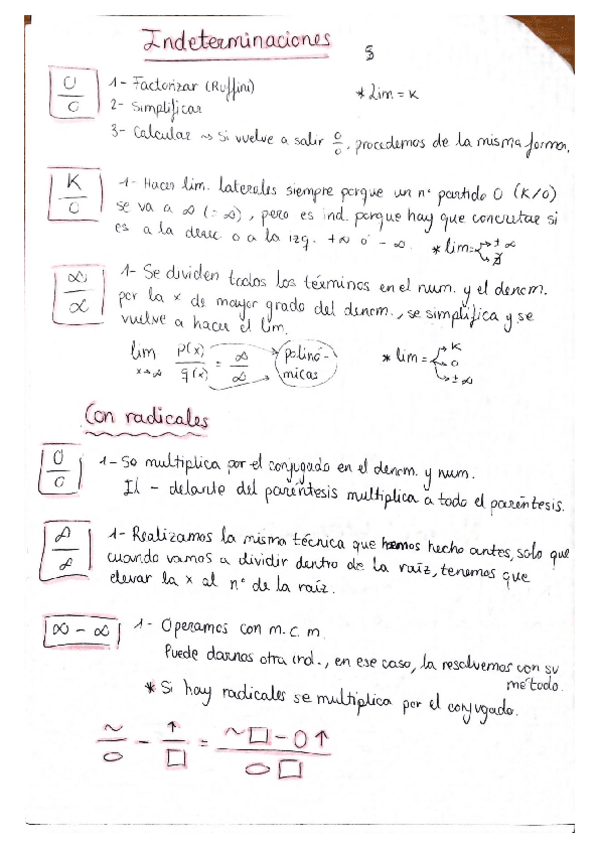 Indeterminaciones
0/0 1- Factorizar (Ruffini) * Lim. = K
2- Simplificar
3- Calcular ⇝ Si vuelve a salir 0/0, procedemos de la misma forma.
K/0 1- Hacer lim. laterales siempre porque un nº partido 0 (K/0)
se va a ∞ (=∞), pero es ind. porque hay que concretar si
es a la derec. o a la izq. +∞ ó -∞. * lim = → ±∞ → ∄
∞/∞ 1- Se dividen todos los términos en el num. y el denom.
por la x de mayor grado del denom., se simplifica y se
vuelve a hacer el lim.
lim x→∞ P(x)/q(x) = ∞/∞ polinó-micas * lim = → K → 0 → ±∞
Con radicales
0/0 1- Se multiplica por el conjugado en el denom. y num.
El - delante del paréntesis multiplica a todo el paréntesis.
∞/∞ 1- Realizamos la misma técnica que hemos hecho antes, solo que
cuando vamos a dividir dentro de la raíz, tenemos que
elevar la x al nº de la raíz.
∞ - ∞ 1- Operamos con m.c.m.
Puede darnos otra ind., en ese caso, la resolvemos con su
método.
* Si hay radicales se multiplica por el conjugado.
~/○ - ↑/□ = ~□ - ○↑/○□